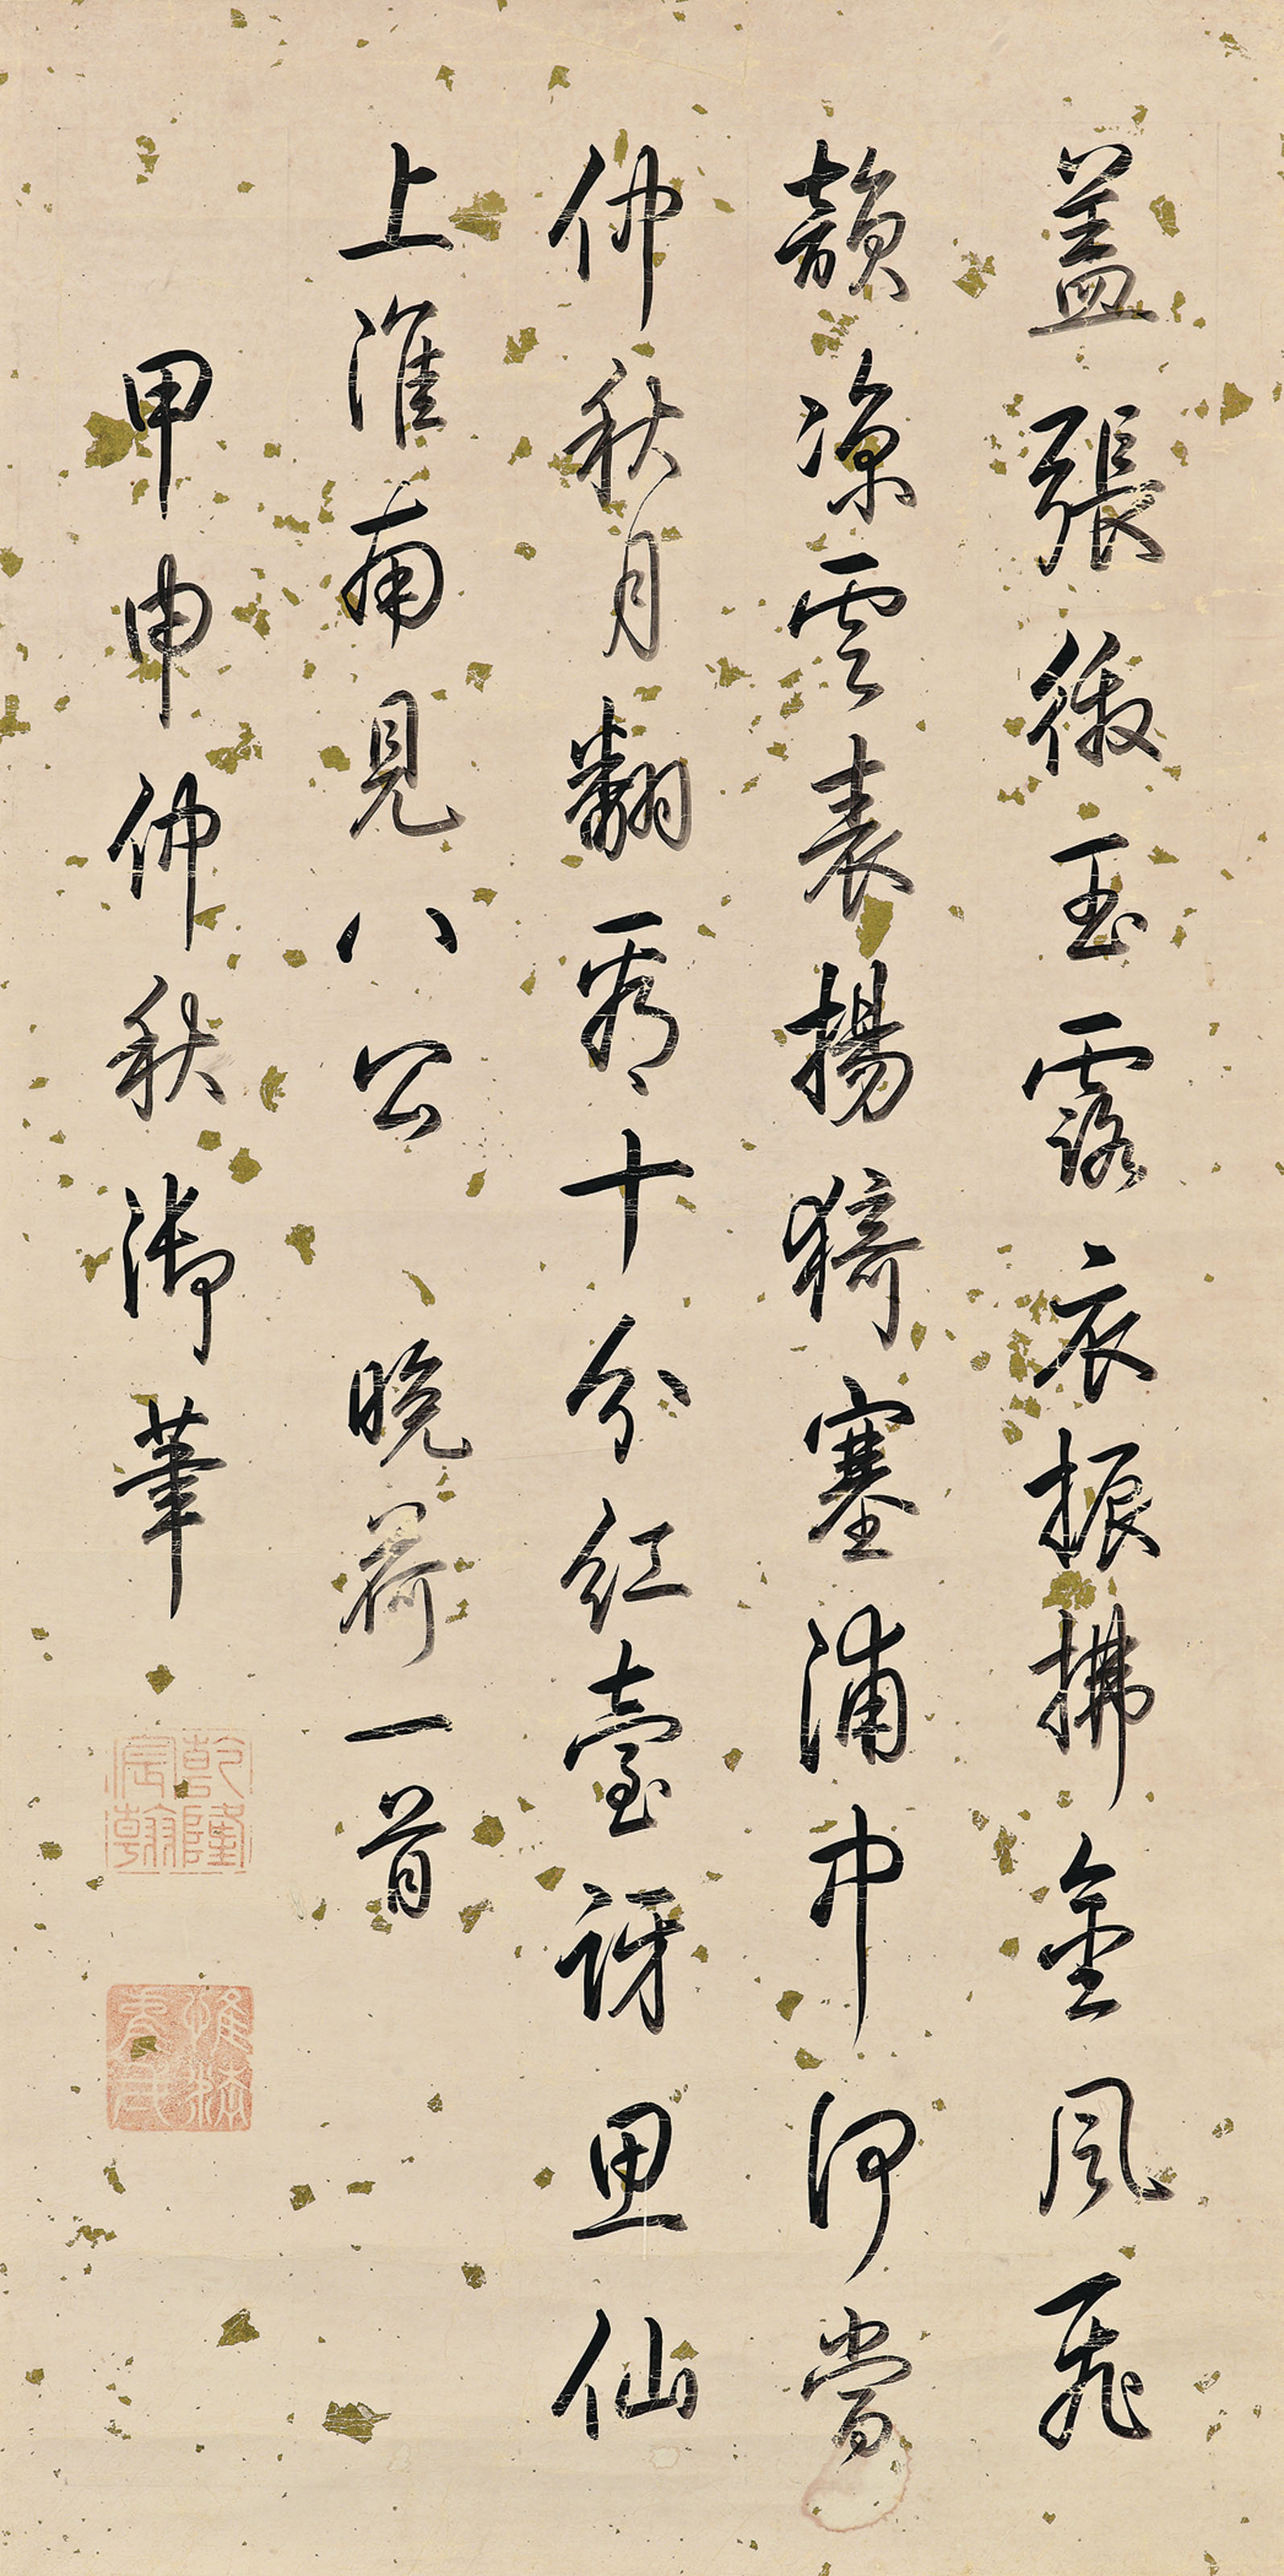 蓋張微玉露衣振拂金風飛
韻涼雲表揚猗塞浦中何當
仲秋月翻看十分紅臺訝思仙
上淮南見八公 晚荷一首
甲申仲秋御筆
乾隆宸翰
惟精惟一